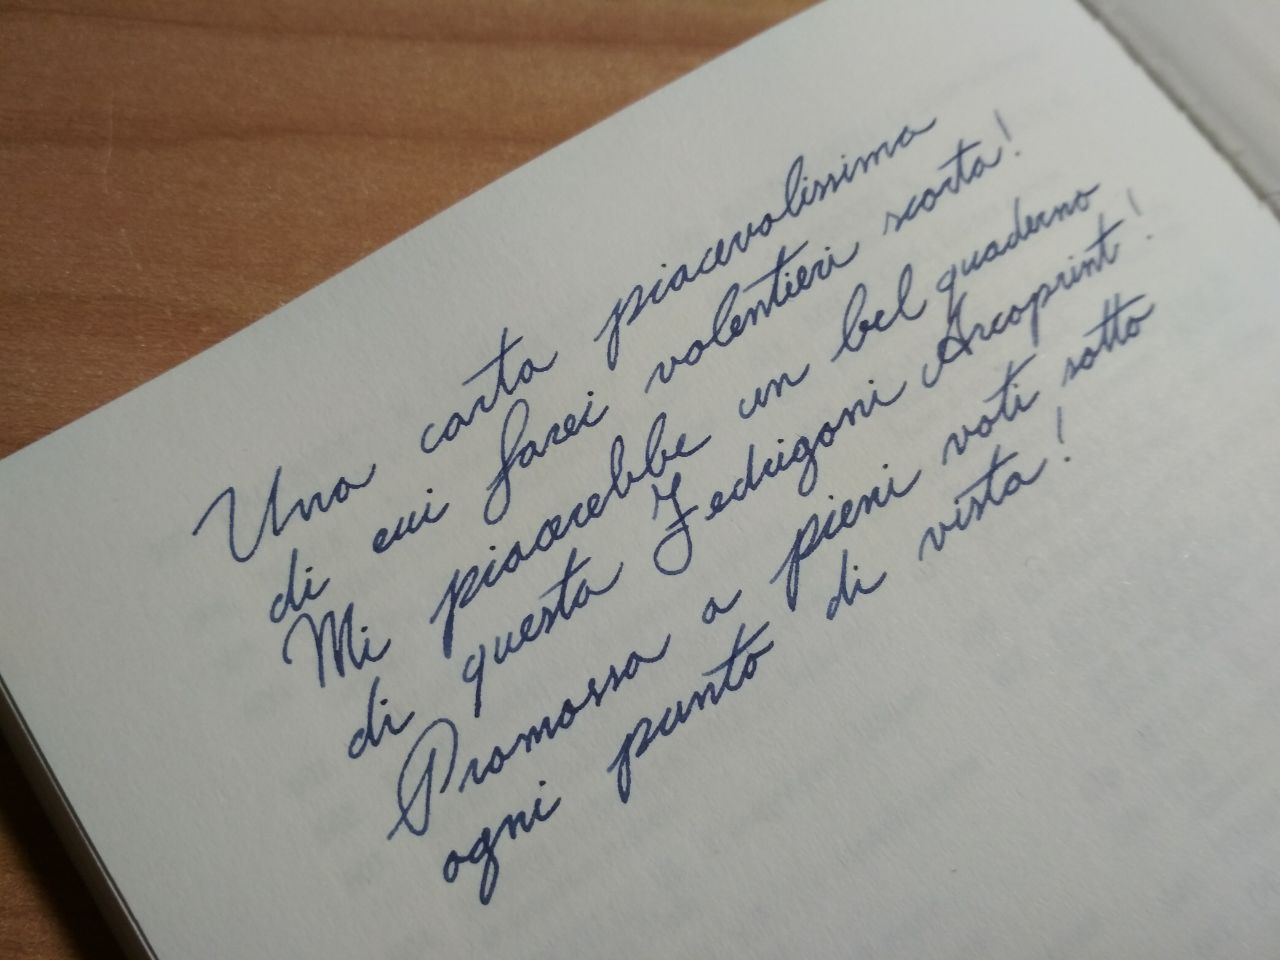 Una carta piacevolissima
di cui farei volentieri scorta!
Mi piacerebbe un bel quaderno
di questa Fedrigoni Arcoprint!
Promossa a pieni voti sotto
ogni punto di vista!